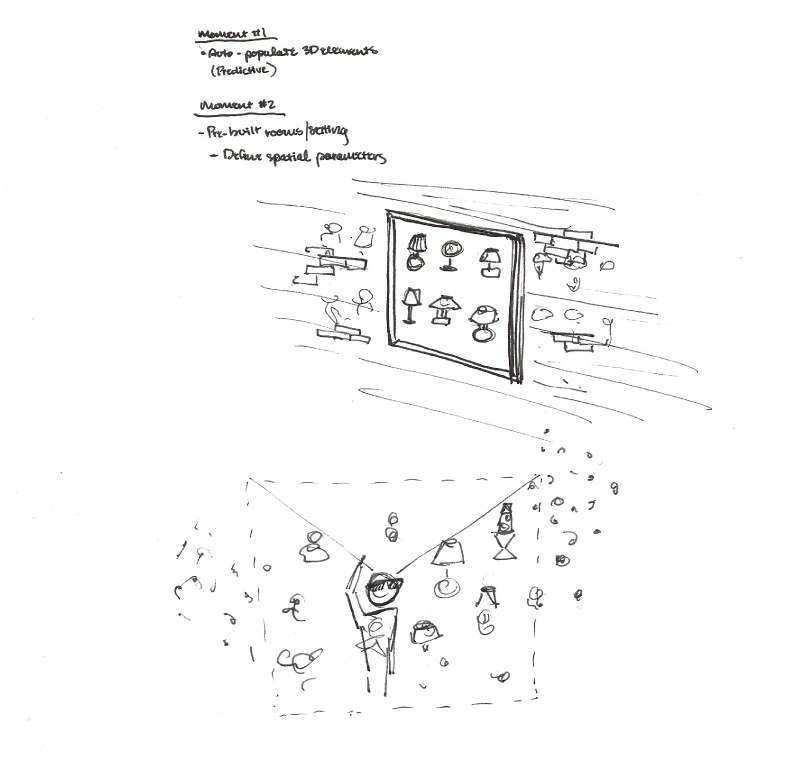 Moment #1
• Auto-populate 3D elements
(Predictive)
Moment #2
- Pre-built rooms/setting
- Define spatial parameters